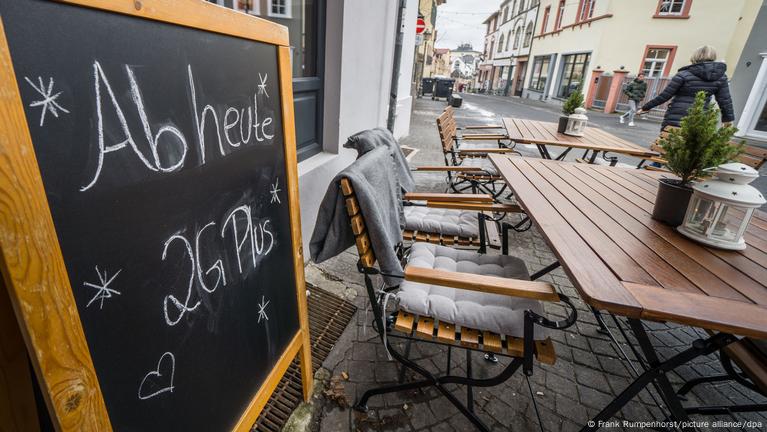 Ab heute
2G Plus
© Frank Rumpenhorst/picture alliance/dpa